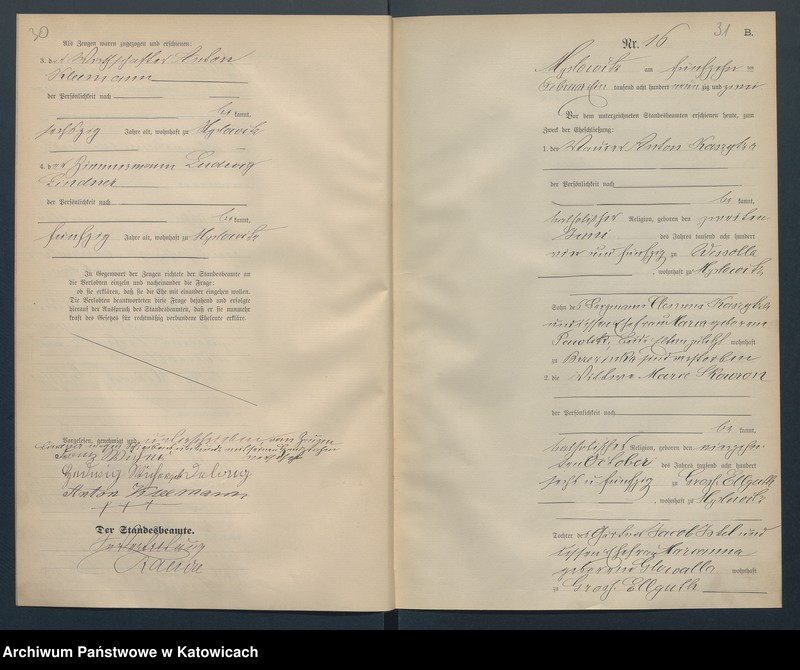 30
Als Zeugen waren zugezogen und erschienen:
3. der Wirthschafter Anton
Kleemann
der Persönlichkeit nach
be kannt,
sechszig Jahre alt, wohnhaft zu Myslowitz
4. der Zimmermann Ludwig
Lindner
der Persönlichkeit nach
be kannt,
fünfzig Jahre alt, wohnhaft zu Myslowitz
In Gegenwart der Zeugen richtete der Standesbeamte an
die Verlobten einzeln und nacheinander die Frage:
ob sie erklären, daß sie die Ehe mit einander eingehen wollen.
Die Verlobten beantworteten diese Frage bejahend und erfolgte
hierauf der Ausspruch des Standesbeamten, daß er sie nunmehr
kraft des Gesetzes für rechtmäßig verbundene Eheleute erkläre.
Vorgelesen, genehmigt und unterschrieben, vom Zeugen
Lindner wegen
Hedwig
Anton Kleemann
+ + +
Der Standesbeamte.
In Vertretung
31
B.
Nr. 16
Myslowitz am fünfzehn ten
Februar ein tausend acht hundert neun zig und zwei
Vor dem unterzeichneten Standesbeamten erschienen heute, zum
Zweck der Eheschließung:
1. der Maurer Anton
der Persönlichkeit nach
be kannt,
katholischer Religion, geboren den zweiten
Juni des Jahres tausend acht hundert
und fünfzig zu Wessolla
, wohnhaft zu Myslowitz
Sohn des Bergmanns Clemens
und dessen Ehefrau Maria geborene
wohnhaft
zu Brzezinka und verstorben
2. die Wittwe Marie Skowron
der Persönlichkeit nach
be kannt,
katholischer Religion, geboren den
ten October des Jahres tausend acht hundert
sechs und fünfzig zu Gross Ellguth
, wohnhaft zu Myslowitz
Tochter des Gärtner Jacob und
dessen Ehefrau Marianna
geborene wohnhaft
zu Gross Ellguth
Archiwum Państwowe w Katowicach